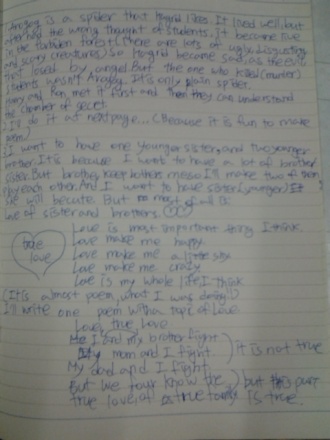 Aragog is a spider that Hagrid likes. It loved well, but
after had the wrong thought of students. It became live
in the forbidden forest (There are lots of ugly, disgusting
and scary creatures) So Hagrid became sad, as the evil
that loved by angel. But the one who killed (murder)
students wasn't Aragog. It's only plain spider.
Harry and Ron met it first and then they can understand
the chamber of secret.
I'll do it at next page... (Because it is fun to make
I want to have one younger sister, and two younger
brother. It's because I want to have a lot of brother
sister. But brother keep bothers me so I'll make two of them
play each other. And I want to have sister (younger) It
she will be cute. But most of all is
love of sister and brothers.
Love is most important thing I think.
true
love
Love make me happy
Love make me a little shy
Love make me crazy
Love is my whole life I think
(It is almost poem, what I was doing)
I'll write one poem with a topic of Love
Love, true love
I and my brother fight
My mom and I fight
it is not true
My dad and I fight
But we four know the
true love of is true
but is true.